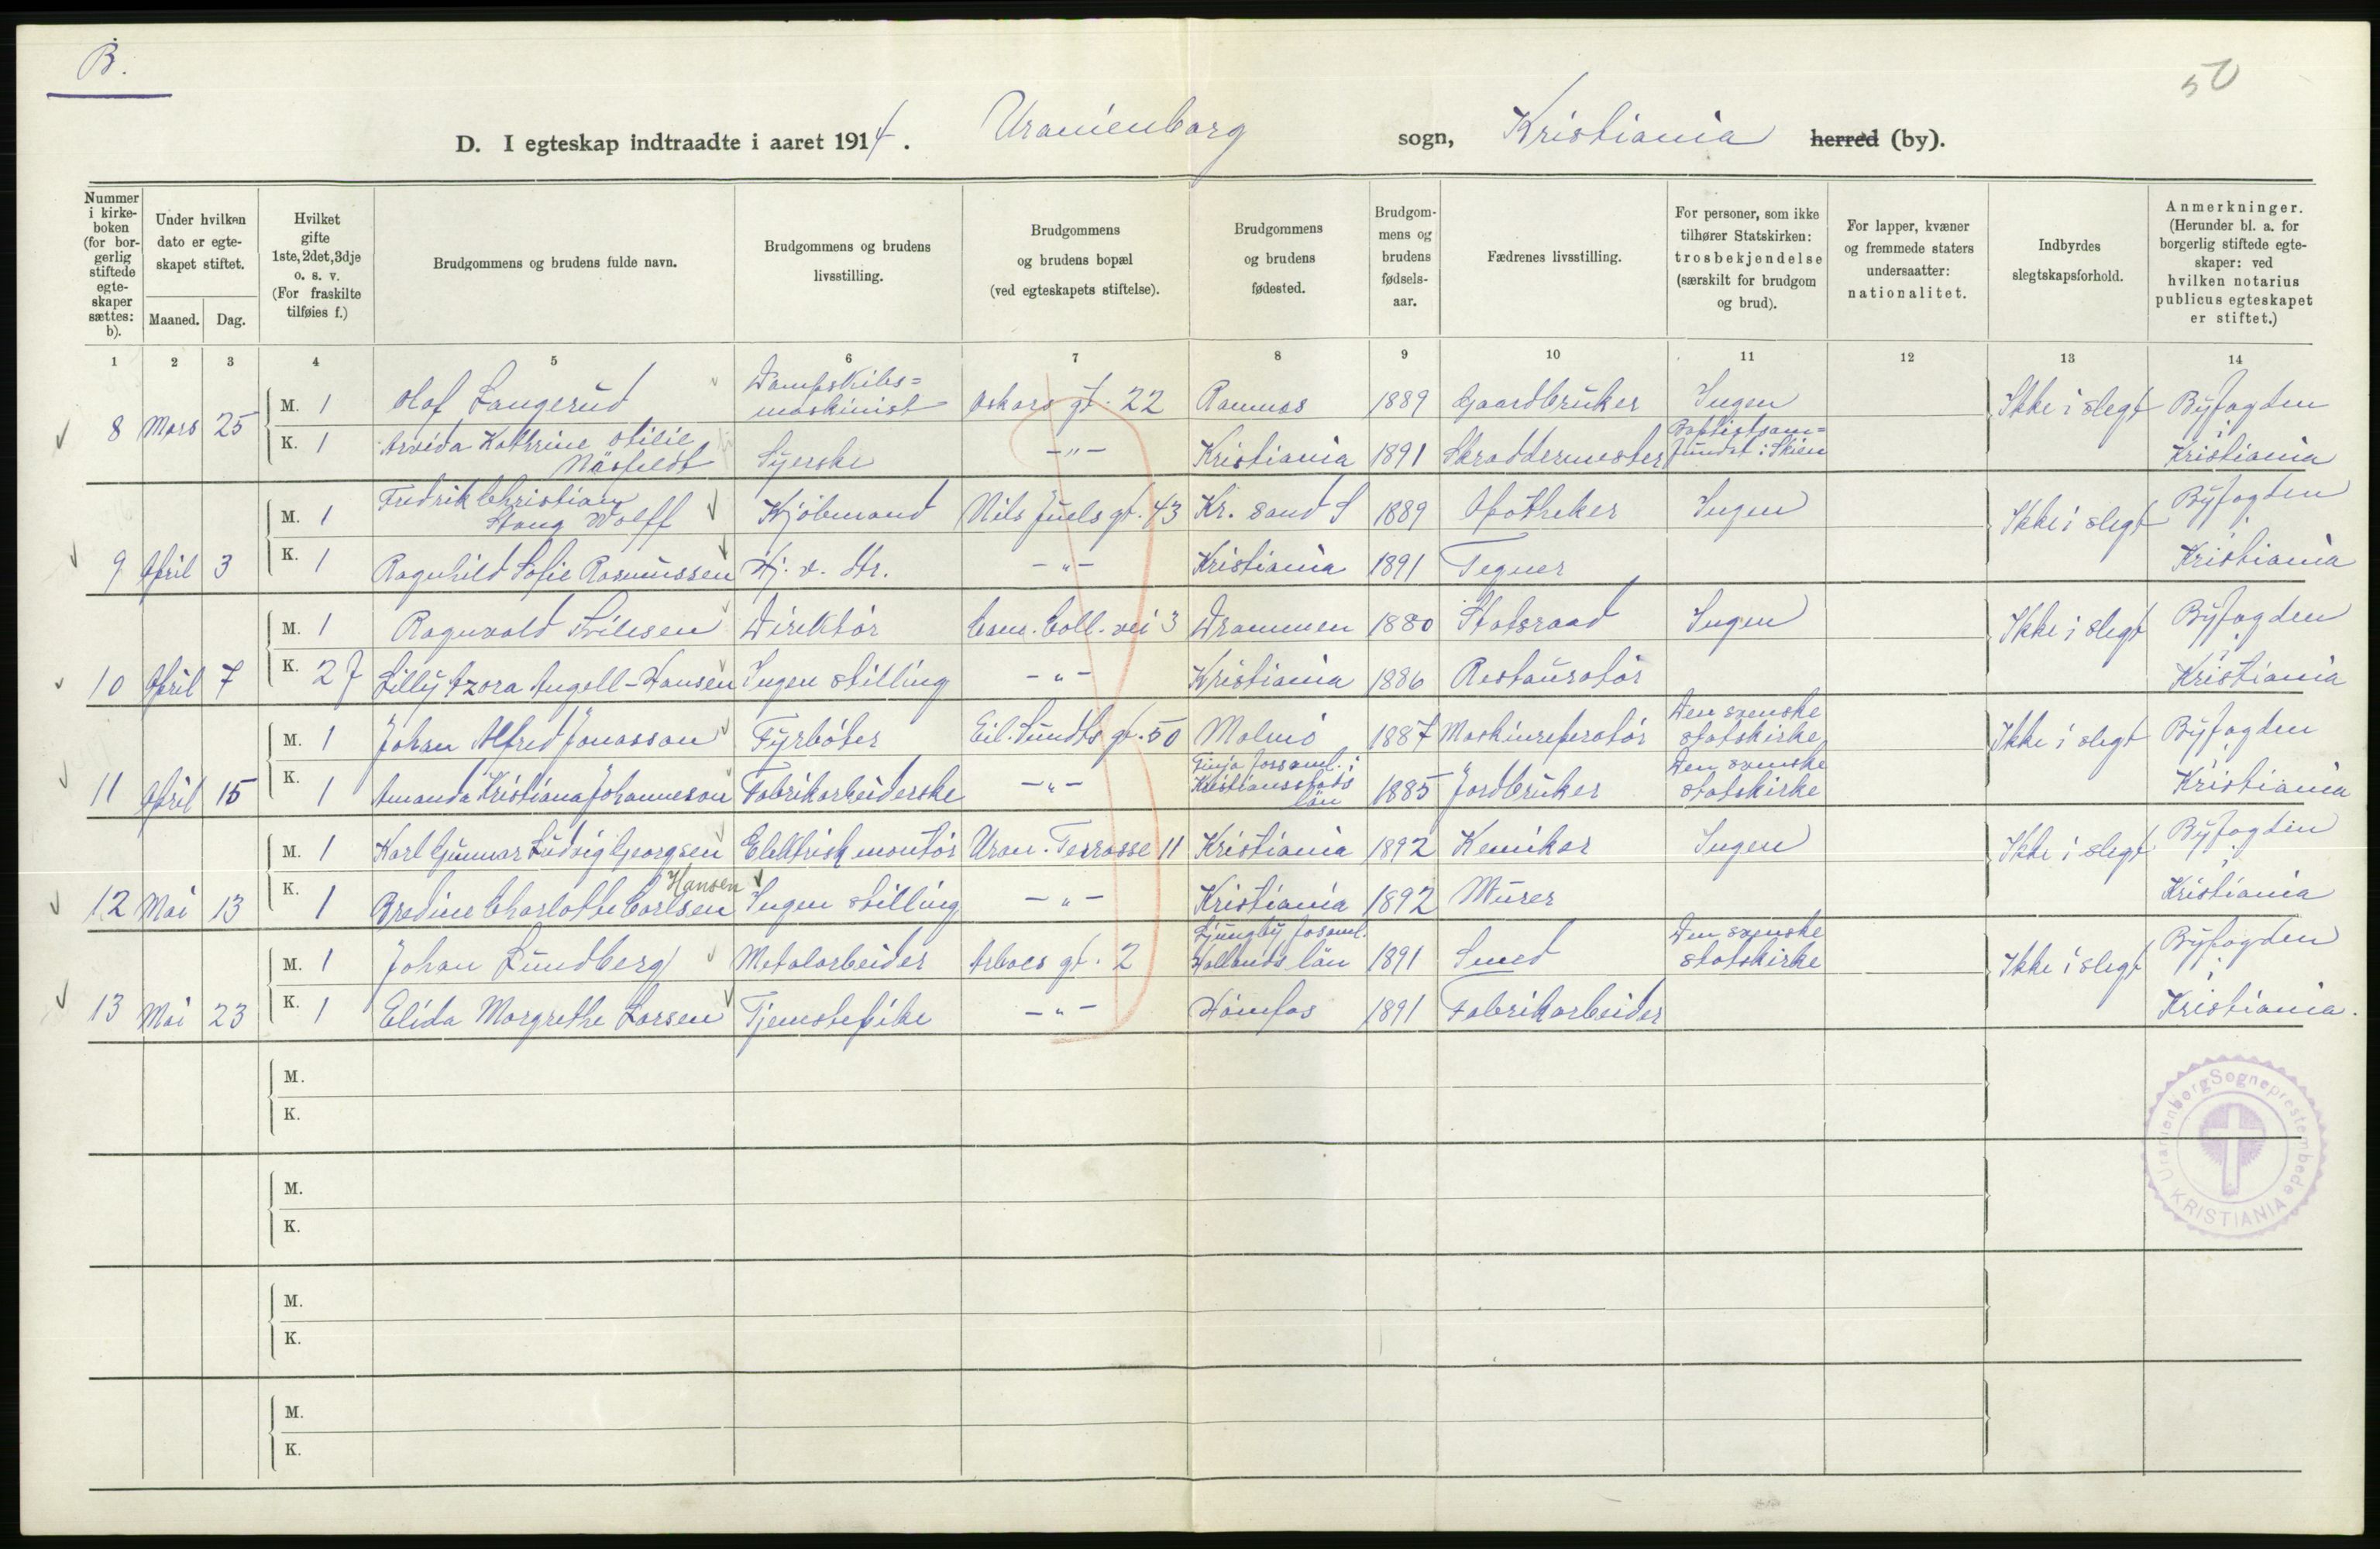 B.
50
D. I egteskap indtraadte i aaret 1914. Uranienborg sogn, Kristiania herred (by).
Nummer i kirke-boken (for bor-gerlig stiftede egte-skaper sættes: b).
Under hvilken dato er egte-skapet stiftet.
Maaned. Dag.
Hvilket gifte 1ste, 2det, 3dje o. s. v. (For fraskilte tilføies f.)
Brudgommens og brudens fulde navn.
Brudgommens og brudens livsstilling.
Brudgommens og brudens bopæl (ved egteskapets stiftelse).
Brudgommens og brudens fødested.
Brudgom-mens og brudens fødsels-aar.
Fædrenes livsstilling.
For personer, som ikke tilhører Statskirken: trosbekjendelse (særskilt for brudgom og brud).
For lapper, kvæner og fremmede staters undersaatter: nationalitet.
Indbyrdes slegtskapsforhold.
Anmerkninger. (Herunder bl. a. for borgerlig stiftede egte-skaper: ved hvilken notarius publicus egteskapet er stiftet.)
1 2 3 4 5 6 7 8 9 10 11 12 13 14
8 Mars 25 M. 1 Olaf Langerud Dampskibs=maskinist Oskars gt. 22 Ramnas 1889 Gaardbruker Ingen Ikke i slegt Byfogden i Kristiania
K. 1 Arvida Kathrine Otilie Näsfeldt Syerske -"- Kristiania 1891 Skraddermester Baptistsam=fundet i Skien
9 April 3 M. 1 Fredrik Christian Stang Wolff Kjöbmand Nils Juels gt. 43 Kr. sand S 1889 Apotheker Ingen Ikke i slegt Byfogden i Kristiania
K. 1 Ragnhild Sofie Rasmussen Hj. v. -"- Kristiania 1891 Tegner
10 April 7 M. 1 Ragnvald Direktör Cam. Coll. vei 3 Drammen 1880 Statsraad Ingen Ikke i slegt Byfogden i Kristiania
K. 2 f Lilly Azora Angell-Hansen Ingen stilling -"- Kristiania 1886 Restauratör
11 April 15 M. 1 Johan Alfred Jonasson Fyrböter Eil. Sundts gt. 50 Malmö 1887 Maskinreparatör Den svenske statskirke Ikke i slegt Byfogden i Kristiania
K. 1 Amanda Kristiana Johanneson Fabrikarbeiderske -"- Finja forsaml. i Kristiansstads län 1885 Jordbruker Den svenske statskirke
12 Mai 13 M. 1 Karl Gunnar Ludvig Georgsen Elektrisk montör Uran. Terrasse 11 Kristiania 1892 Kemiker Ingen Ikke i slegt Byfogden i Kristiania
Hansen
K. 1 Bredine Charlotte Carlsen Ingen stilling -"- Kristiania 1892 Murer
13 Mai 23 M. 1 Johan Lundberg Metalarbeider Arboes gt. 2 Ljungby fosaml. Hallands län 1891 Smed Den svenske statskirke Ikke i slegt Byfogden i Kristiania.
K. 1 Elida Margrethe Larsen Tjenestepike -"- Hönfos 1891 Fabrikarbeider
M.
K.
M.
K.
M.
K.
M.
K.
Uranienborg Sogneprestembede KRISTIANIA